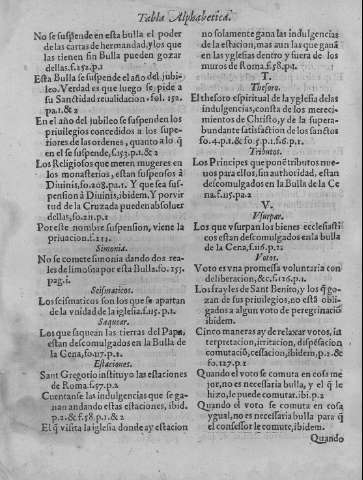 Tabla Alphabetica.
No se suspende en esta bulla el poder
de las cartas de hermandad, y los que
las tienen sin Bulla pueden gozar
dellas. f.252.p.1
Esta Bulla se suspende el año del jubi-
leo. Verdad es que luego se pide a
su Sanctidad reualidacion. fol. 252.
pa.1
En el año del jubileo se suspenden los
priuilegios concedidos a los supe-
riores de las ordenes, quanto a lo q̃
en el se suspende, f.253.p.1.&2
Los Religiosos que meten mugeres en
los monasterios, estan suspensos à
Diuinis, fo.208.pa.1. Y que sea sus-
pension à Diuinis, ibidem. Y por vir
tud de la Cruzada pueden absoluer
dellas, fo.211.p.1
Por este nombre suspension, viene la
priuacion. f.113.
Simonia.
No se comete simonia dando dos rea-
les de limosna por esta Bulla. fo. 255.
pag.1.
Scismaticos.
Los scismaticos son los que se apartan
de la vnidad de la iglesia. f.115.p.1.
Saquear.
Los que saquean las tierras del Papa,
estan descomulgados en la Bulla de
la Cena, fo.117.p.1.
Estaciones.
Sant Gregorio instituyo las estaciones
de Roma. f.57.p.2
Cuentanse las indulgencias que se ga-
nan andando estas estaciones, ibid.
p.2.& f.58.p.1.& 2
El q̃ visita la iglesia donde ay estacion
no solamente gana las indulgencias
de la estacion, mas aun las que ganà
en las yglesias dentro y fuera de los
muros de Roma. f.58.p.1.
T.
Thesoro.
El thesoro espiritual de la yglesia de las
indulgencias, consta de los mereci-
mientos de Christo, y de la supera-
bundante satisfaction de los sanctos
fo.4.p.1.& fo.5.p.1.f.6.p.1.
Tributos.
Los Principes que ponẽ tributos nue-
uos para ellos, sin authoridad, estan
descomulgados en la Bulla de la Ce
na. f.115.pa.2
V.
Vsurpar.
Los que vsurpan los bienes ecclesiasti
cos estan descomulgados en la bulla
de la Cena, f.116.p.12
Votos.
Voto es vna promessa voluntaria con
deliberacion, &c. f.126.p.1.
Los frayles de San Benito, y los q̃ go-
zan de sus priuilegios, no estã obli-
gados a algun voto de peregrinació
ibidem.
Cinco maneras ay de relaxar votos, in
terpretacion, irritacion, dispẽsacion
comutació, cessacion, ibidem. p.2.&
fo.127.p.2
Quando el voto se comuta en cosa me
jor, no es necessaria bulla, y el q̃ le
hizo, le puede comutar. ibi.p.2
Quando el voto se comuta en cosa
ygual, no es necessaria bulla para q̃
el confessor le comute, ibidem.
Quando